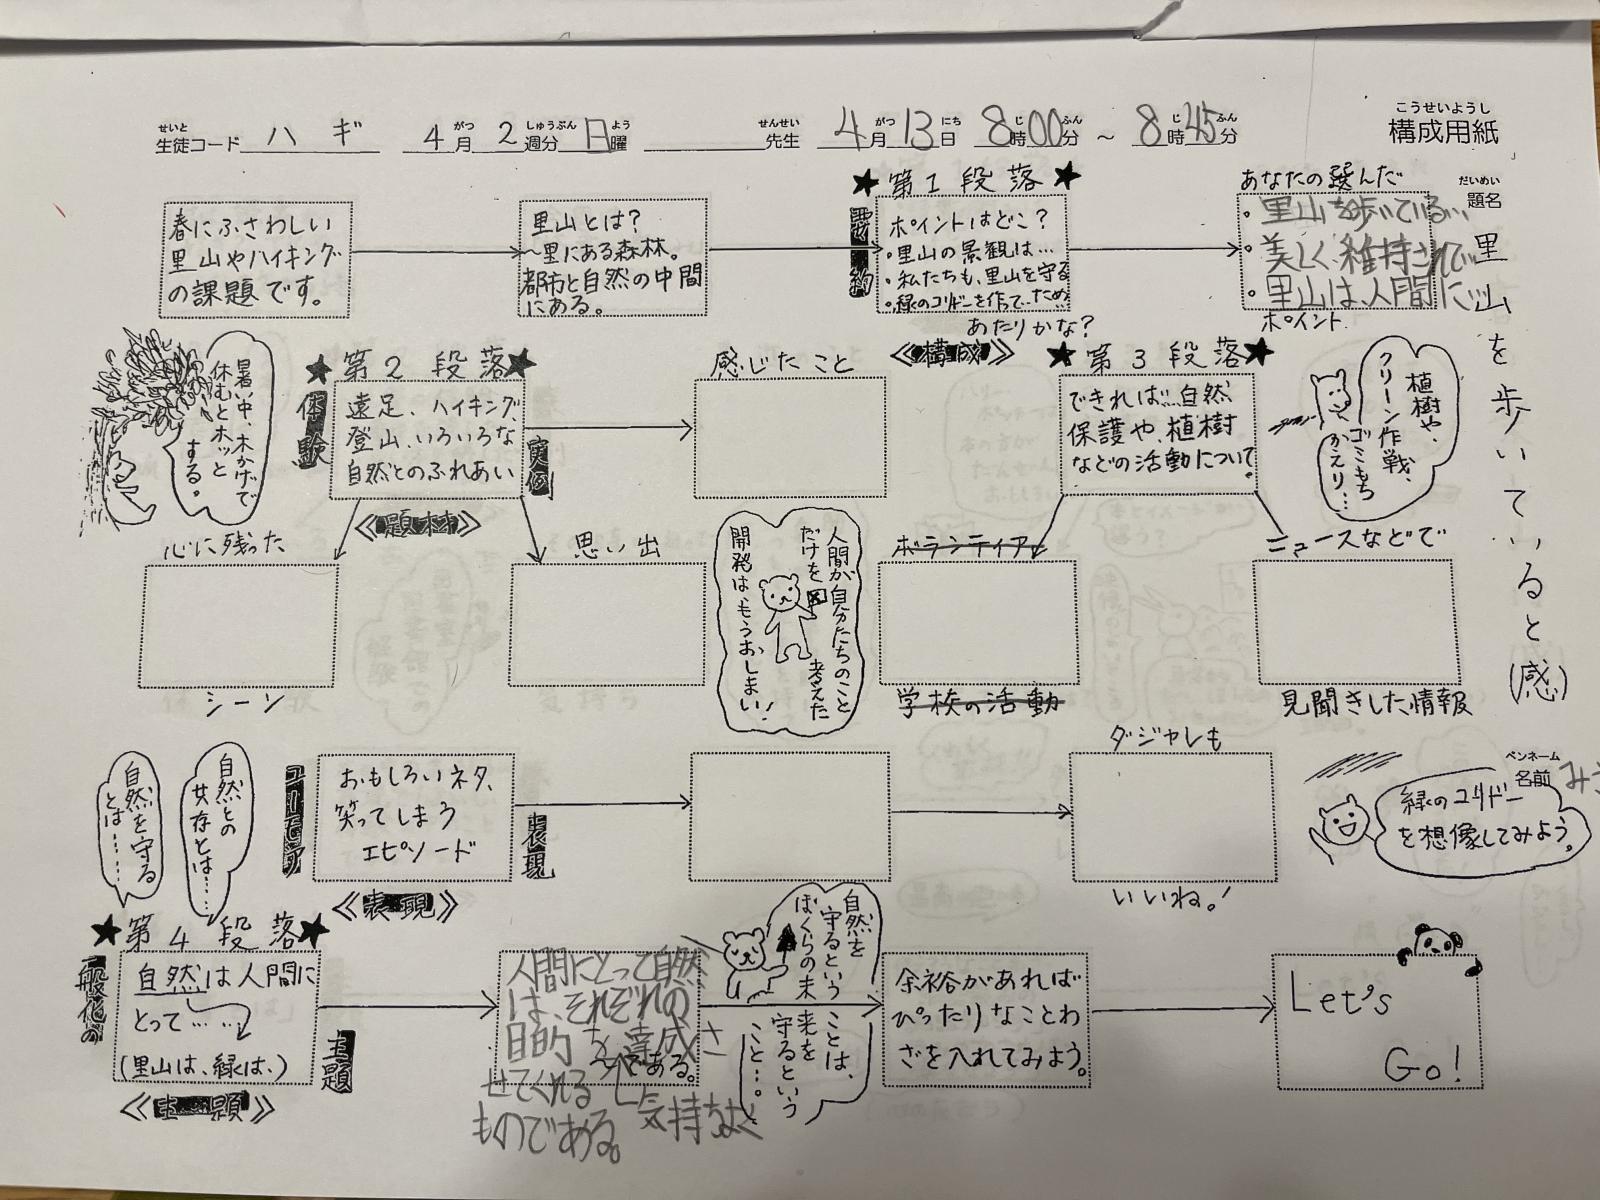 構成用紙
こうせいようし
生徒コード ハギ 4月 2週分 日曜 先生 4月13日 8時00分 ~ 8時45分
せいと がつ しゅうぶん よう せんせい がつ にち じ ふん じ ふん
題名
だいめい
里山を歩いていると(感)
名前
ペンネーム
春にふさわしい
里山やハイキング
の課題です。
里山とは?
~里にある森林。
都市と自然の中間
にある。
★第1段落★
要約
ポイントはどこ?
・里山の景観は…
・私たちも、里山を守る
・緑のコリドーを作って…ため
あたりかな?
あなたの選んだ
・里山を歩いている…
・美しく維持されて…
・里山は、人間に…
ポイント
暑い中、木かげで
休むとホッと
する。
★第2段落★
体験
遠足、ハイキング
登山、いろいろな
自然とのふれあい
実例
《題材》
感じたこと
《構成》
★第3段落★
できれば…自然
保護や、植樹
などの活動について。
植樹や、
クリーン作戦、
ゴミもち
かえり…
心に残った
シーン
思い出
人間が自分たちのこと
だけを考えた
開発は、もうおしまい!
ボランティア
学校の活動
ニュースなどで
見聞きした情報
自然との
共存とは……
自然を守る
とは……
ユーモア
おもしろいネタ、
笑ってしまう
エピソード
表現
《表現》
ダジャレも
いいね!
緑のコリドー
を想像してみよう。
★第4段落★
一般化の
自然は人間に
とって……
(里山は、緑は、)
主題
《主題》
人間にとって自然
は、それぞれの
目的を達成さ
せてくれる
ものである。
気持ちよく
である。
自然を
守るという
ことは、
ぼくらの未
来を
守るという
こと…。
余裕があれば
ぴったりなことわ
ざを入れてみよう。
Let's
Go!